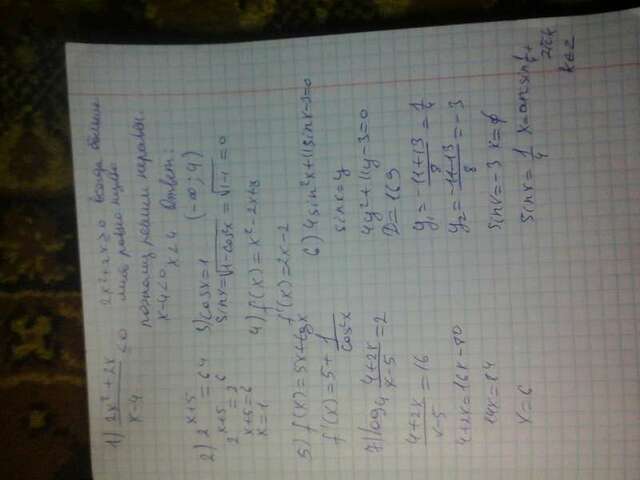 1) (2x²+2x)/(x-4) < 0   2x²+2x≥0 всегда больше
либо равно нулю
поэтому решим неравен.
x-4<0
x<4   Ответ: (-∞; 4)
2) 2^(x+5) = 64
2^(x+5) = 2^6
x+5=6
x=1
3) cosx=1
sinx=√(1-cos²x) = √(1-1) = 0
4) f(x)=x²-2x+8
f'(x)=2x-2
5) f(x)=5x+tgx
f'(x)=5+1/cos²x
6) 4sin²x+11sinx-3=0
sinx=y
4y²+11y-3=0
D=169
y₁=(-11+13)/8=1/4
y₂=(-11+13)/8=-3
sinx=-3 x=ϕ
sinx=1/4 x=arcsin 1/4+
2πk
k∈Z
7) log₄ (4+2x)/(x-5) = 2
(4+2x)/(x-5) = 16
4+2x=16x-80
14x=84
x=6